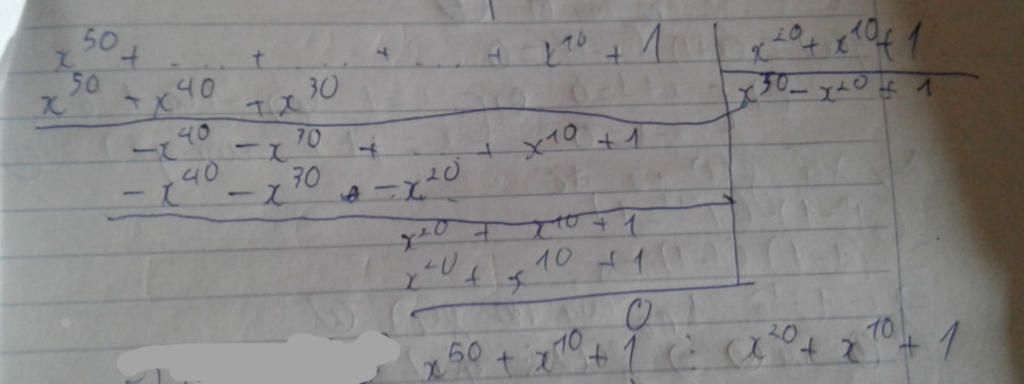 x⁵⁰ + .... + .... + .... + x¹⁰ + 1 | x²⁰ + x¹⁰ + 1
x⁵⁰ + x⁴⁰ + x³⁰ | x³⁰ - x²⁰ + 1
-x⁴⁰ - x³⁰ + .... + x¹⁰ + 1
-x⁴⁰ - x³⁰ - x²⁰
x²⁰ + x¹⁰ + 1
x²⁰ + x¹⁰ + 1
0
x⁵⁰ + x¹⁰ + 1 ⋮ (x²⁰ + x¹⁰ + 1